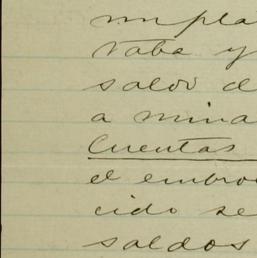 taba y
saldo d
a mina
Cuentas
el embro
cido se
saldos